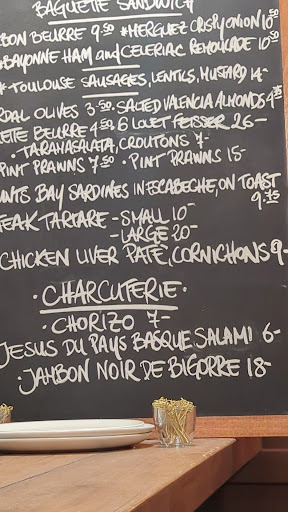 BAGUETTE SANDWICH
BON BEURRE 9.50 *MERGUEZ CRISPY ONION 10.50
*BAYONNE HAM and CELERIAC REMOULADE 10.50
*TOULOUSE SAUSAGES, LENTILS, MUSTARD 14-
RDAL OLIVES 3.50 · SALTED VALENCIA ALMONDS 4.75
ETTE BEURRE 4.50 6 LOUET FEISSER 26-
· TARAMASALATA, CROUTONS 7-
PINT PRAWNS 7.50 · PINT PRAWNS 15-
NTS BAY SARDINES IN ESCABECHE, ON TOAST
9.75
TEAK TARTARE - SMALL 10-
- LARGE 20-
CHICKEN LIVER PATE, CORNICHONS 9-
· CHARCUTERIE ·
· CHORIZO 7-
JESUS DU PAYS BASQUE SALAMI 6-
· JAMBON NOIR DE BIGORRE 18-